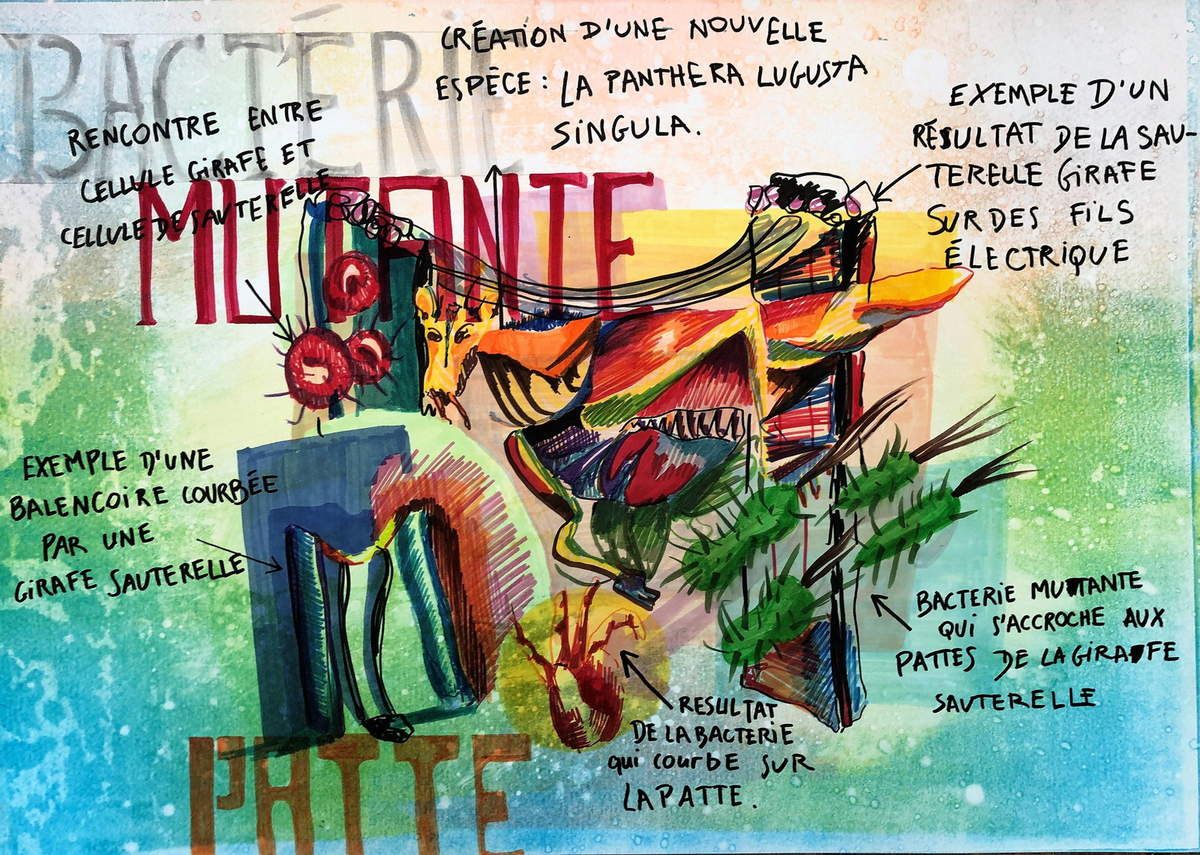 BACTÉRIE
MUTANTE
PATTE
CRÉATION D'UNE NOUVELLE
ESPÈCE : LA PANTHERA LUGUSTA
SINGULA.
RENCONTRE ENTRE
CELLULE GIRAFE ET
CELLULE DE SAUTERELLE
EXEMPLE D'UN
RÉSULTAT DE LA SAU-
TERELLE GIRAFE
SUR DES FILS
ÉLECTRIQUE
EXEMPLE D'UNE
BALENCOIRE COURBÉE
PAR UNE
GIRAFE SAUTERELLE
BACTERIE MUTANTE
QUI S'ACCROCHE AUX
PATTES DE LA GIRAFFE
SAUTERELLE
RESULTAT
DE LA BACTERIE
qui courbe SUR
LA PATTE.